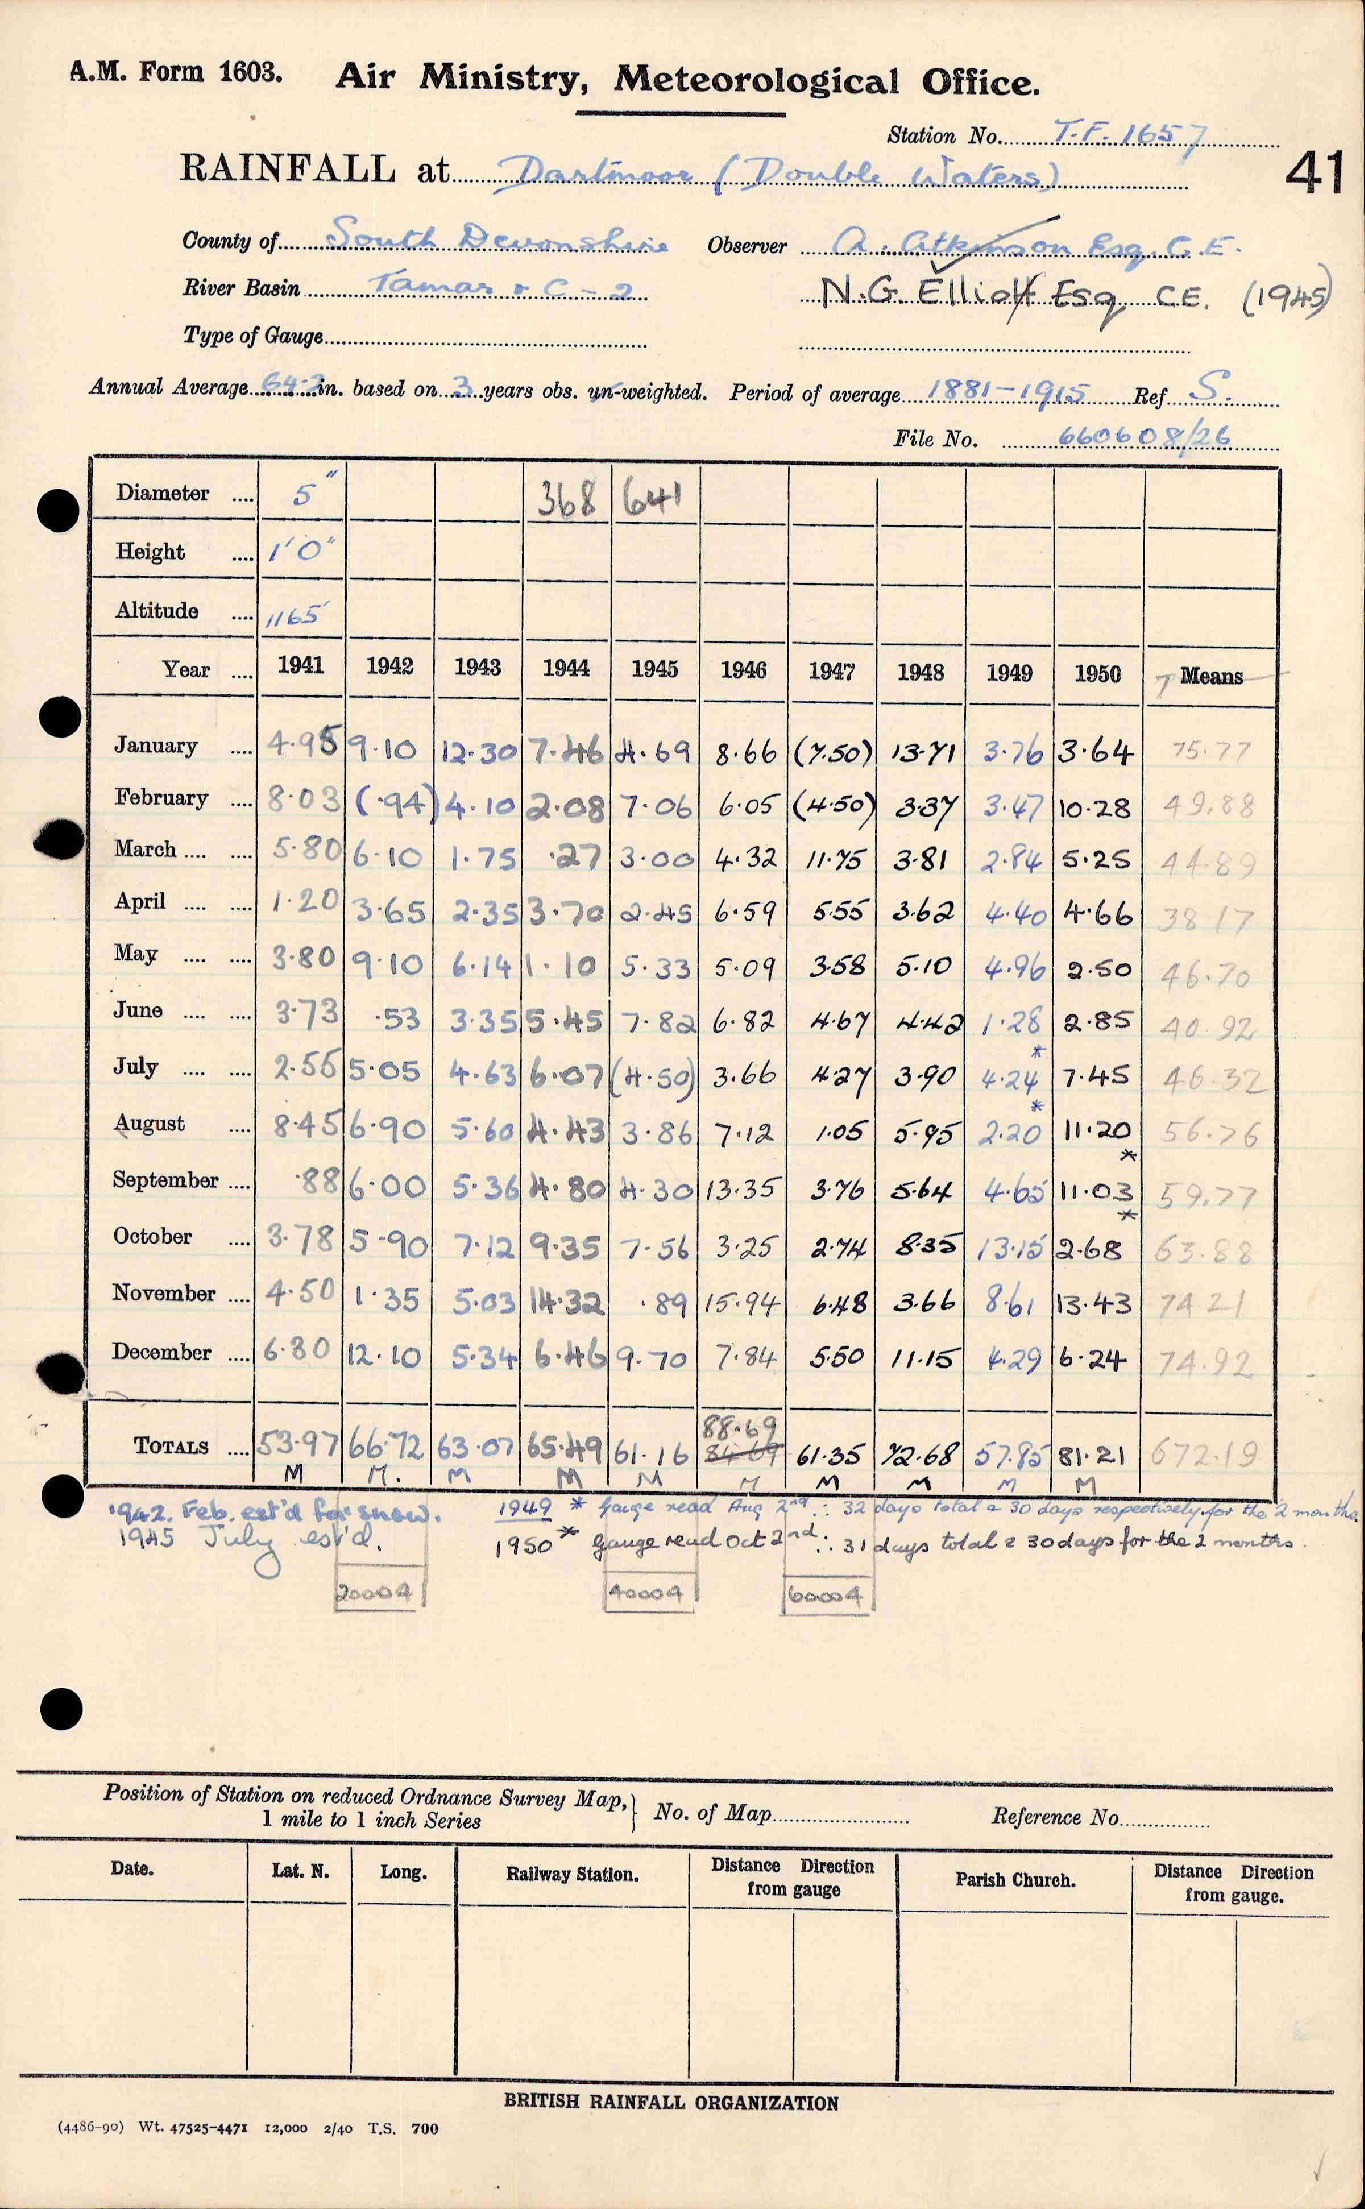 A.M. Form 1603. Air Ministry, Meteorological Office.
Station No. T.F. 1657
41
RAINFALL at Dartmoor (Double Waters)
County of South Devonshire Observer A. Atkinson Esq. C.E.
River Basin Tamar & C - 2 N.G. Elliott Esq C.E. (1945)
Type of Gauge
Annual Average 64.2 in. based on 3 years obs. un-weighted. Period of average 1881-1915 Ref S.
File No. 660608/26
Diameter .... 5" 368 641
Height .... 1'0"
Altitude .... 1165'
Year .... 1941 1942 1943 1944 1945 1946 1947 1948 1949 1950 T Means
January .... 4.95 9.10 12.30 7.46 4.69 8.66 (7.50) 13.71 3.76 3.64 75.77
February .... 8.03 (.94) 4.10 2.08 7.06 6.05 (4.50) 3.37 3.47 10.28 49.88
March .... .... 5.80 6.10 1.75 .27 3.00 4.32 11.75 3.81 2.84 5.25 44.89
April .... .... 1.20 3.65 2.35 3.70 2.45 6.59 5.55 3.62 4.40 4.66 38.17
May .... .... 3.80 9.10 6.14 1.10 5.33 5.09 3.58 5.10 4.96 2.50 46.70
June .... .... 3.73 .53 3.35 5.45 7.82 6.82 4.67 4.42 1.28 2.85 40.92
July .... .... 2.55 5.05 4.63 6.07 (4.50) 3.66 4.27 3.90 4.24* 7.45 46.32
August .... 8.45 6.90 5.60 4.43 3.86 7.12 1.05 5.95 2.20* 11.20 56.76
September .... .88 6.00 5.36 4.80 4.30 13.35 3.76 5.64 4.65 11.03* 59.77
October .... 3.78 5.90 7.12 9.35 7.56 3.25 2.74 8.35 13.15 2.68* 63.88
November .... 4.50 1.35 5.03 14.32 .89 15.94 6.48 3.66 8.61 13.43 74.21
December .... 6.30 12.10 5.34 6.46 9.70 7.84 5.50 11.15 4.29 6.24 74.92
88.69
TOTALS .... 53.97 66.72 63.07 65.49 61.16 84.69 61.35 72.68 57.85 81.21 672.19
M M. M M M M M M M M
1942. Feb. est'd for snow. 1949 * Gauge read Aug 2nd ∴ 32 days total & 30 days respectively for the 2 months.
1945 July est'd. 1950 * Gauge read Oct 2nd ∴ 31 days total & 30 days for the 2 months.
20004 40004 60004
Position of Station on reduced Ordnance Survey Map,
1 mile to 1 inch Series } No. of Map Reference No.
Date. Lat. N. Long. Railway Station. Distance Direction from gauge Parish Church. Distance Direction from gauge.
BRITISH RAINFALL ORGANIZATION
(4486-90) Wt. 47525-4471 12,000 2/40 T.S. 700